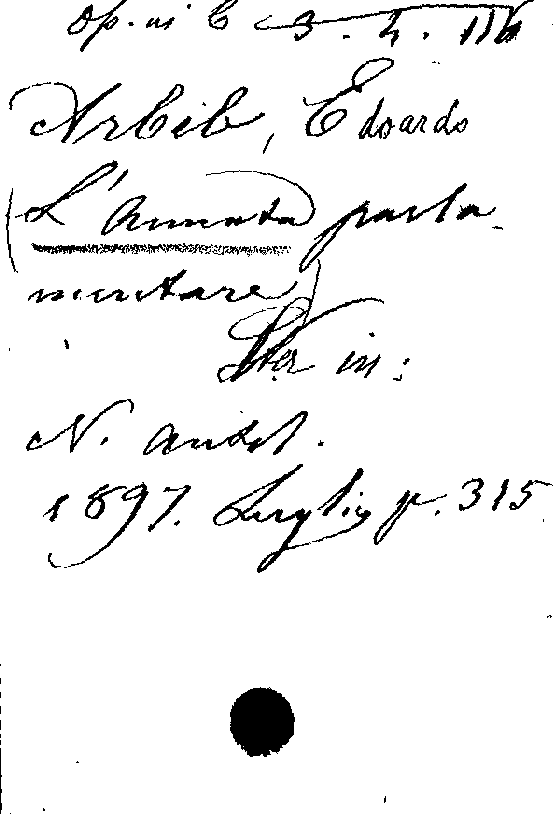 Op. in C 3. 4. 116
Arbib, Edoardo
(L'Annata parla-
mentare)
Ster in:
N. Antol.
1897. Luglio p. 315